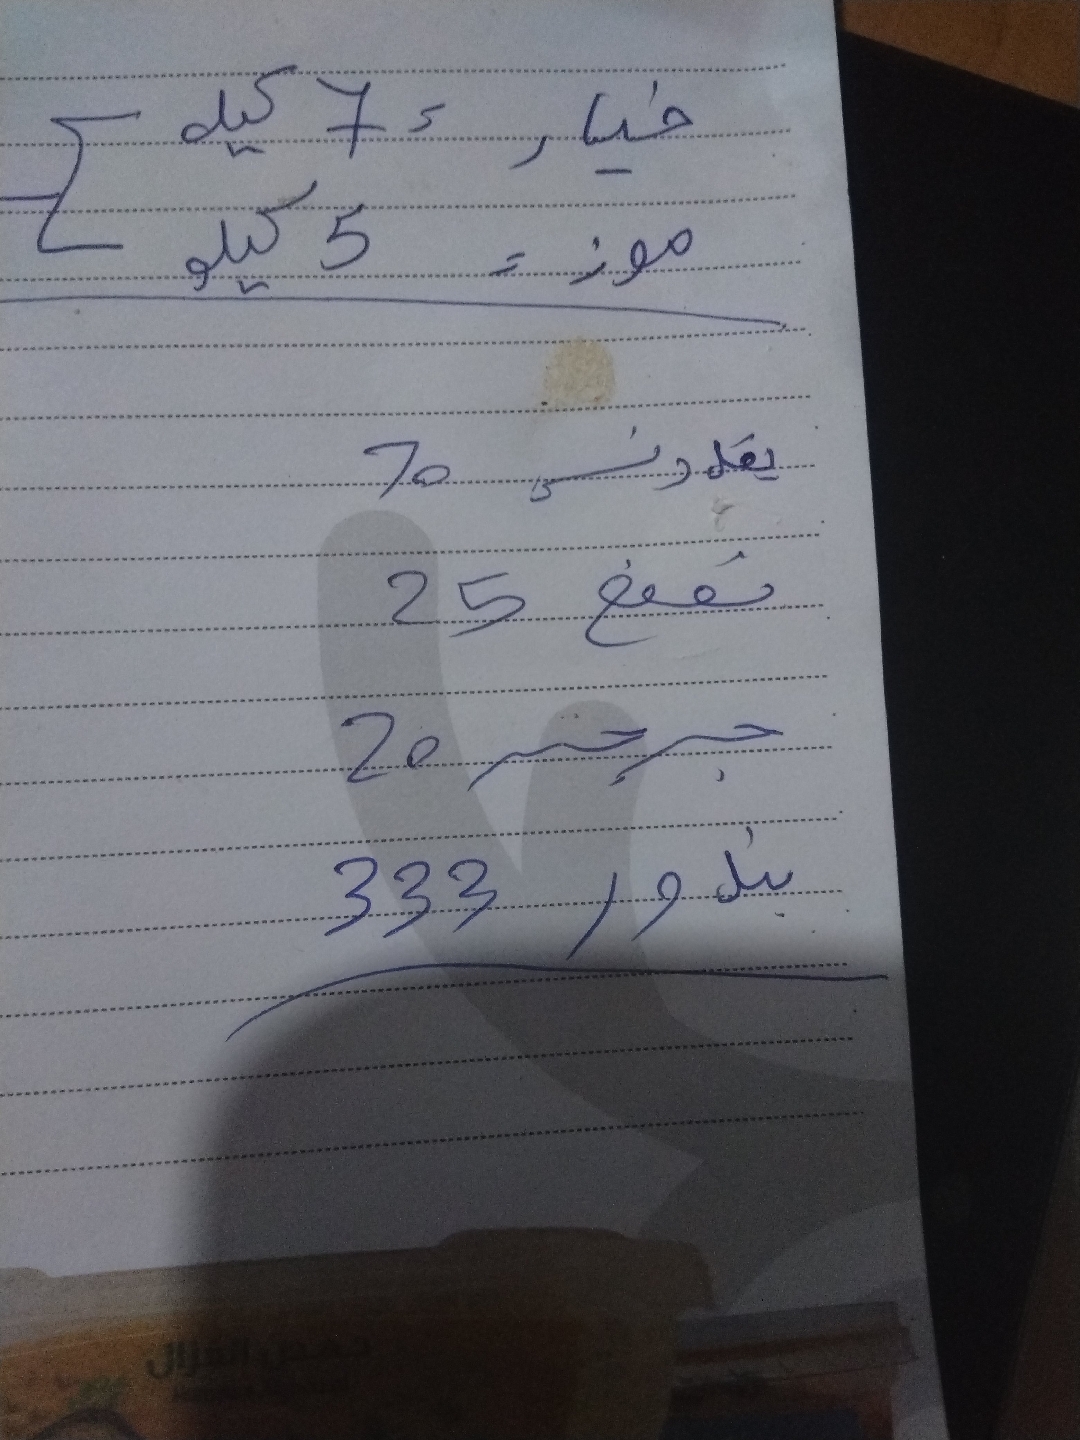 خيار = 7 كيلو
موز = 5 كيلو
بقدونس 70
نعنع 25
جرجير 20
بندور 333